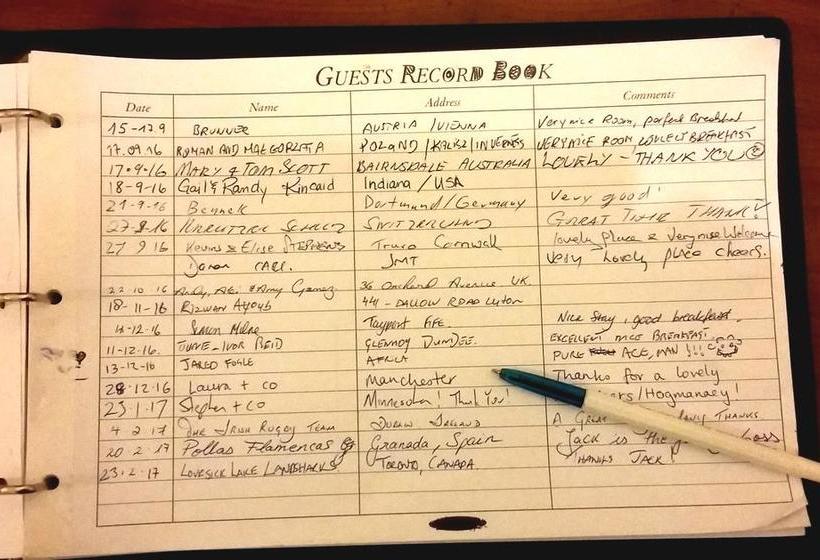 GUESTS RECORD BOOK
Date Name Address Comments
15-12.9 BRUNNER AUSTRIA / VIENNA Very nice Room, perfect Breakfast
17.09 16 ROMAN AND MALGORZATA POLAND / KALISZ / INVERNESS VERY NICE ROOM LOVELY BREAKFAST
17-9-16 MARY & TOM SCOTT BAIRNSDALE AUSTRALIA LOVELY - THANK YOU
18-9-16 Gail & Randy Kincaid Indiana / USA
21-9-16 Dortmund / Germany Very good!
27-9-16 SWITZERLAND GREAT TIME THANK'S
27 9 16 Kevins & Elise STEPHENS Truro Cornwall lovely place & Very nise Welcome
CARR. Very Lovely place cheers.
22 10 16 Andy, & Amy Gomez 36 Orchard Avenue UK.
18-11-16 RIZWAN AYOUB 441 - DALLOW ROAD Luton
4-12-16 Simon Milne Tayport FIFE Nice Stay, good breakfast.
11-12-16. IVOR REID DUNDEE. EXCELLENT NICE BREAKFAST.
13-12-16 JARED FOGLE AFRICA PURE ACE, MAN!!!
28-12-16 Laura + co Manchester Thanks for a lovely
23-1-17 Stephen + co Minnesota! Thank You! /Hogmanay!
4 2 17 THE IRISH RUGBY TEAM DUBLIN IRELAND A GREAT THANKS
20-2-17 Pollas Flamencas Granada, Spain Jack is the Boss
23-2-17 LOVESICK LAKE LANDSHARKS TORONTO, CANADA. THANKS JACK!